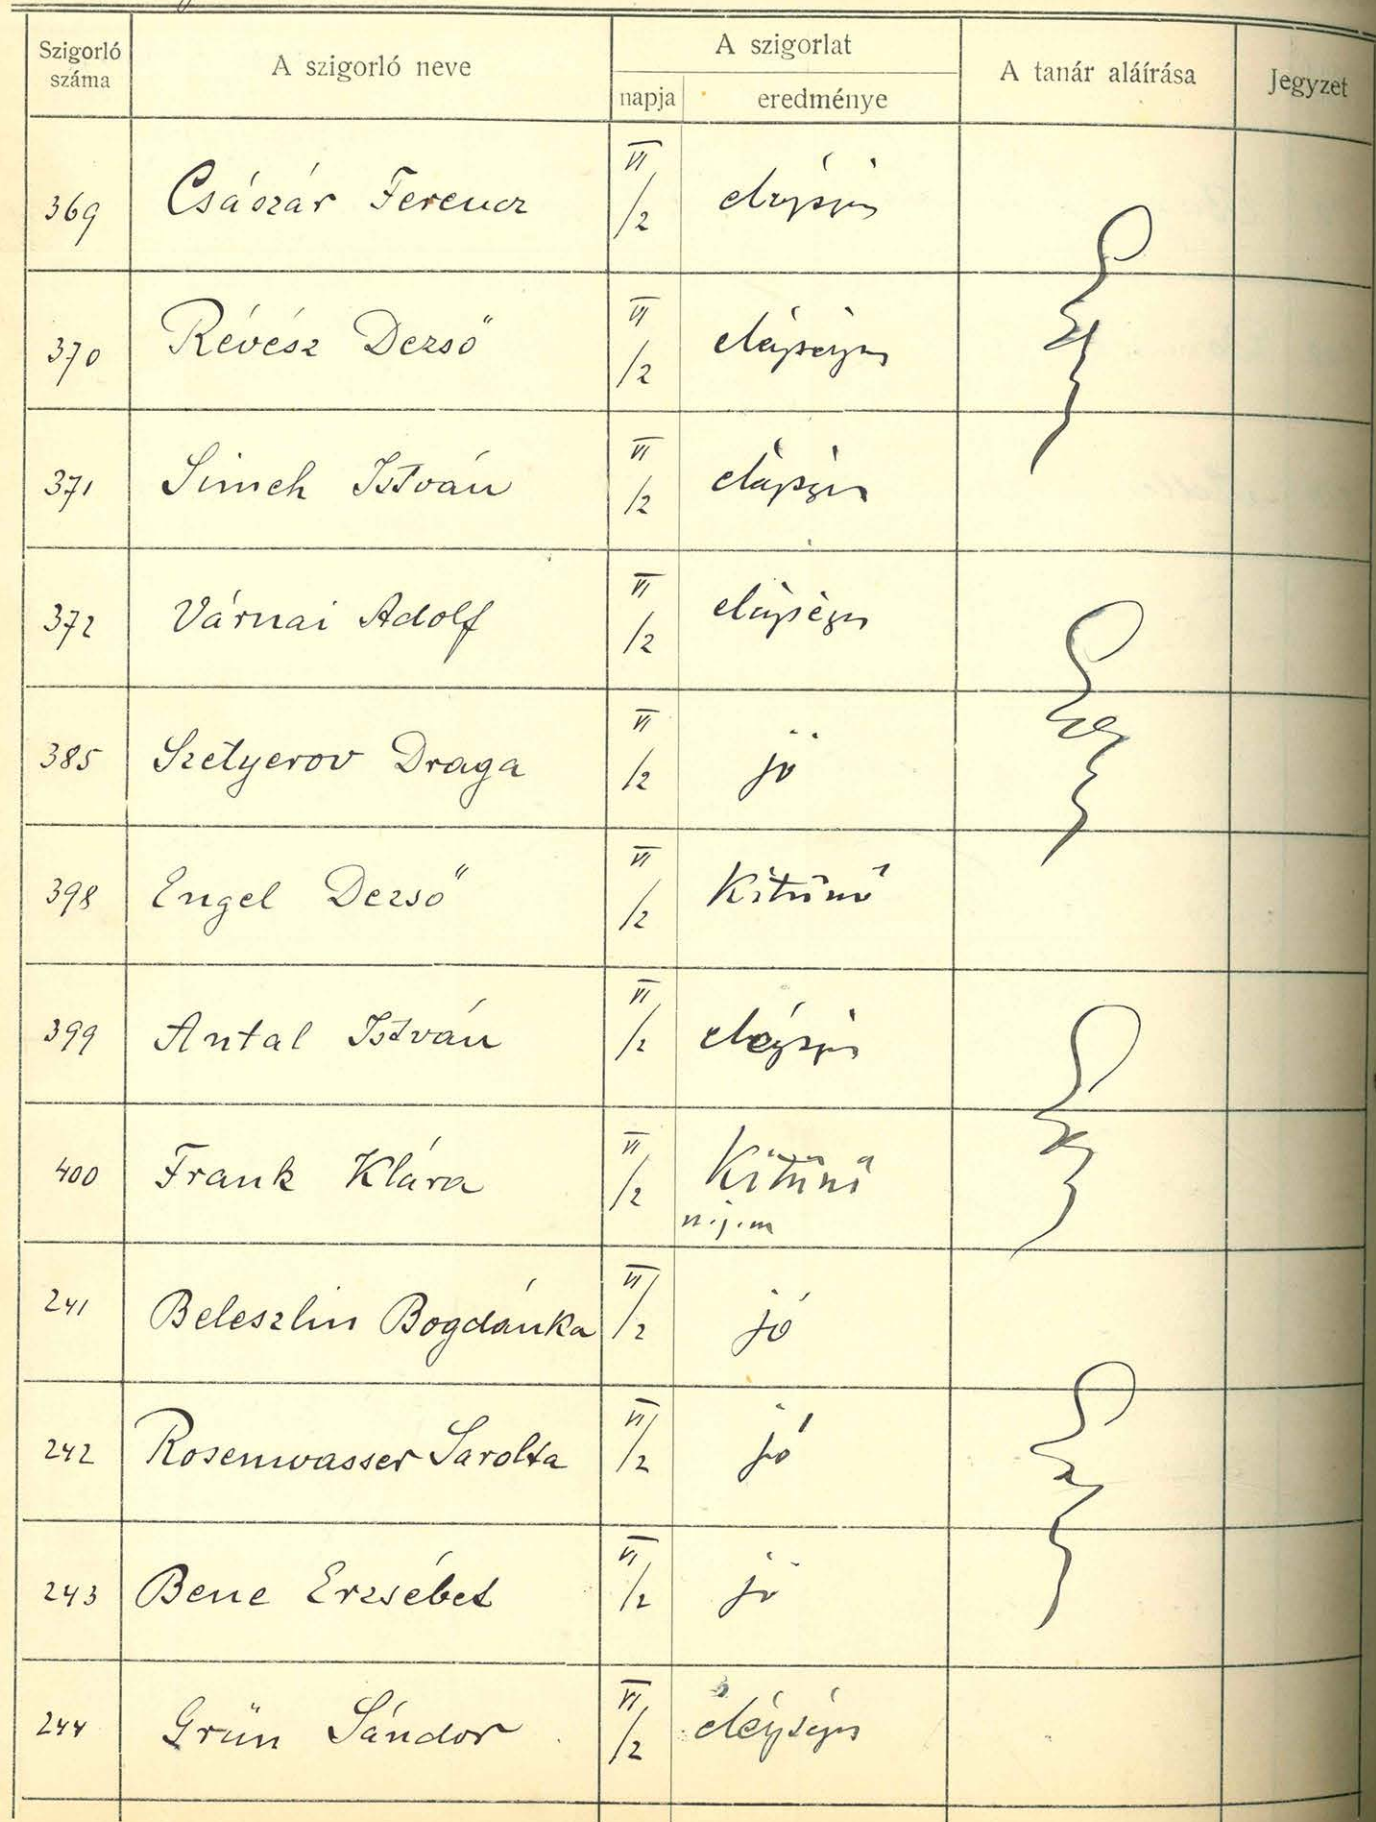 Szigorló száma | A szigorló neve | A szigorlat | A tanár aláírása | Jegyzet
napja | eredménye
369 Császár Ferencz VI/2 elégséges
370 Révész Dezső VI/2 elégséges
371 Simeh István VI/2 elégséges
372 Várnai Adolf VI/2 elégséges
385 Szetyerov Draga VI/2 jó
398 Engel Dezső VI/2 Kitűnő
399 Antal István VI/2 elégséges
400 Frank Klára VI/2 Kitűnő
n.j.m
241 Beleszlin Bogdánka VI/2 jó
242 Rosenwasser Sarolta VI/2 jó
243 Bene Erzsébet VI/2 jó
244 Grün Sándor VI/2 elégséges